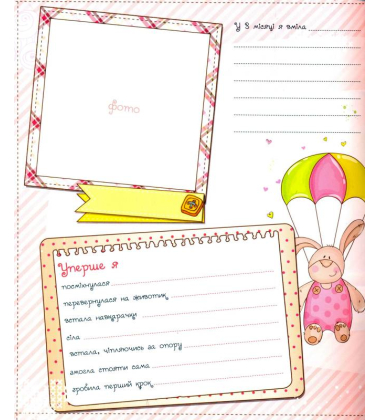 У 8 місяці я вміла
фото
Уперше я
посміхнулася
перевернулася на животик
встала навкарачки
сіла
встала, чіпляючись за опору
змогла стояти сама
зробила перший крок